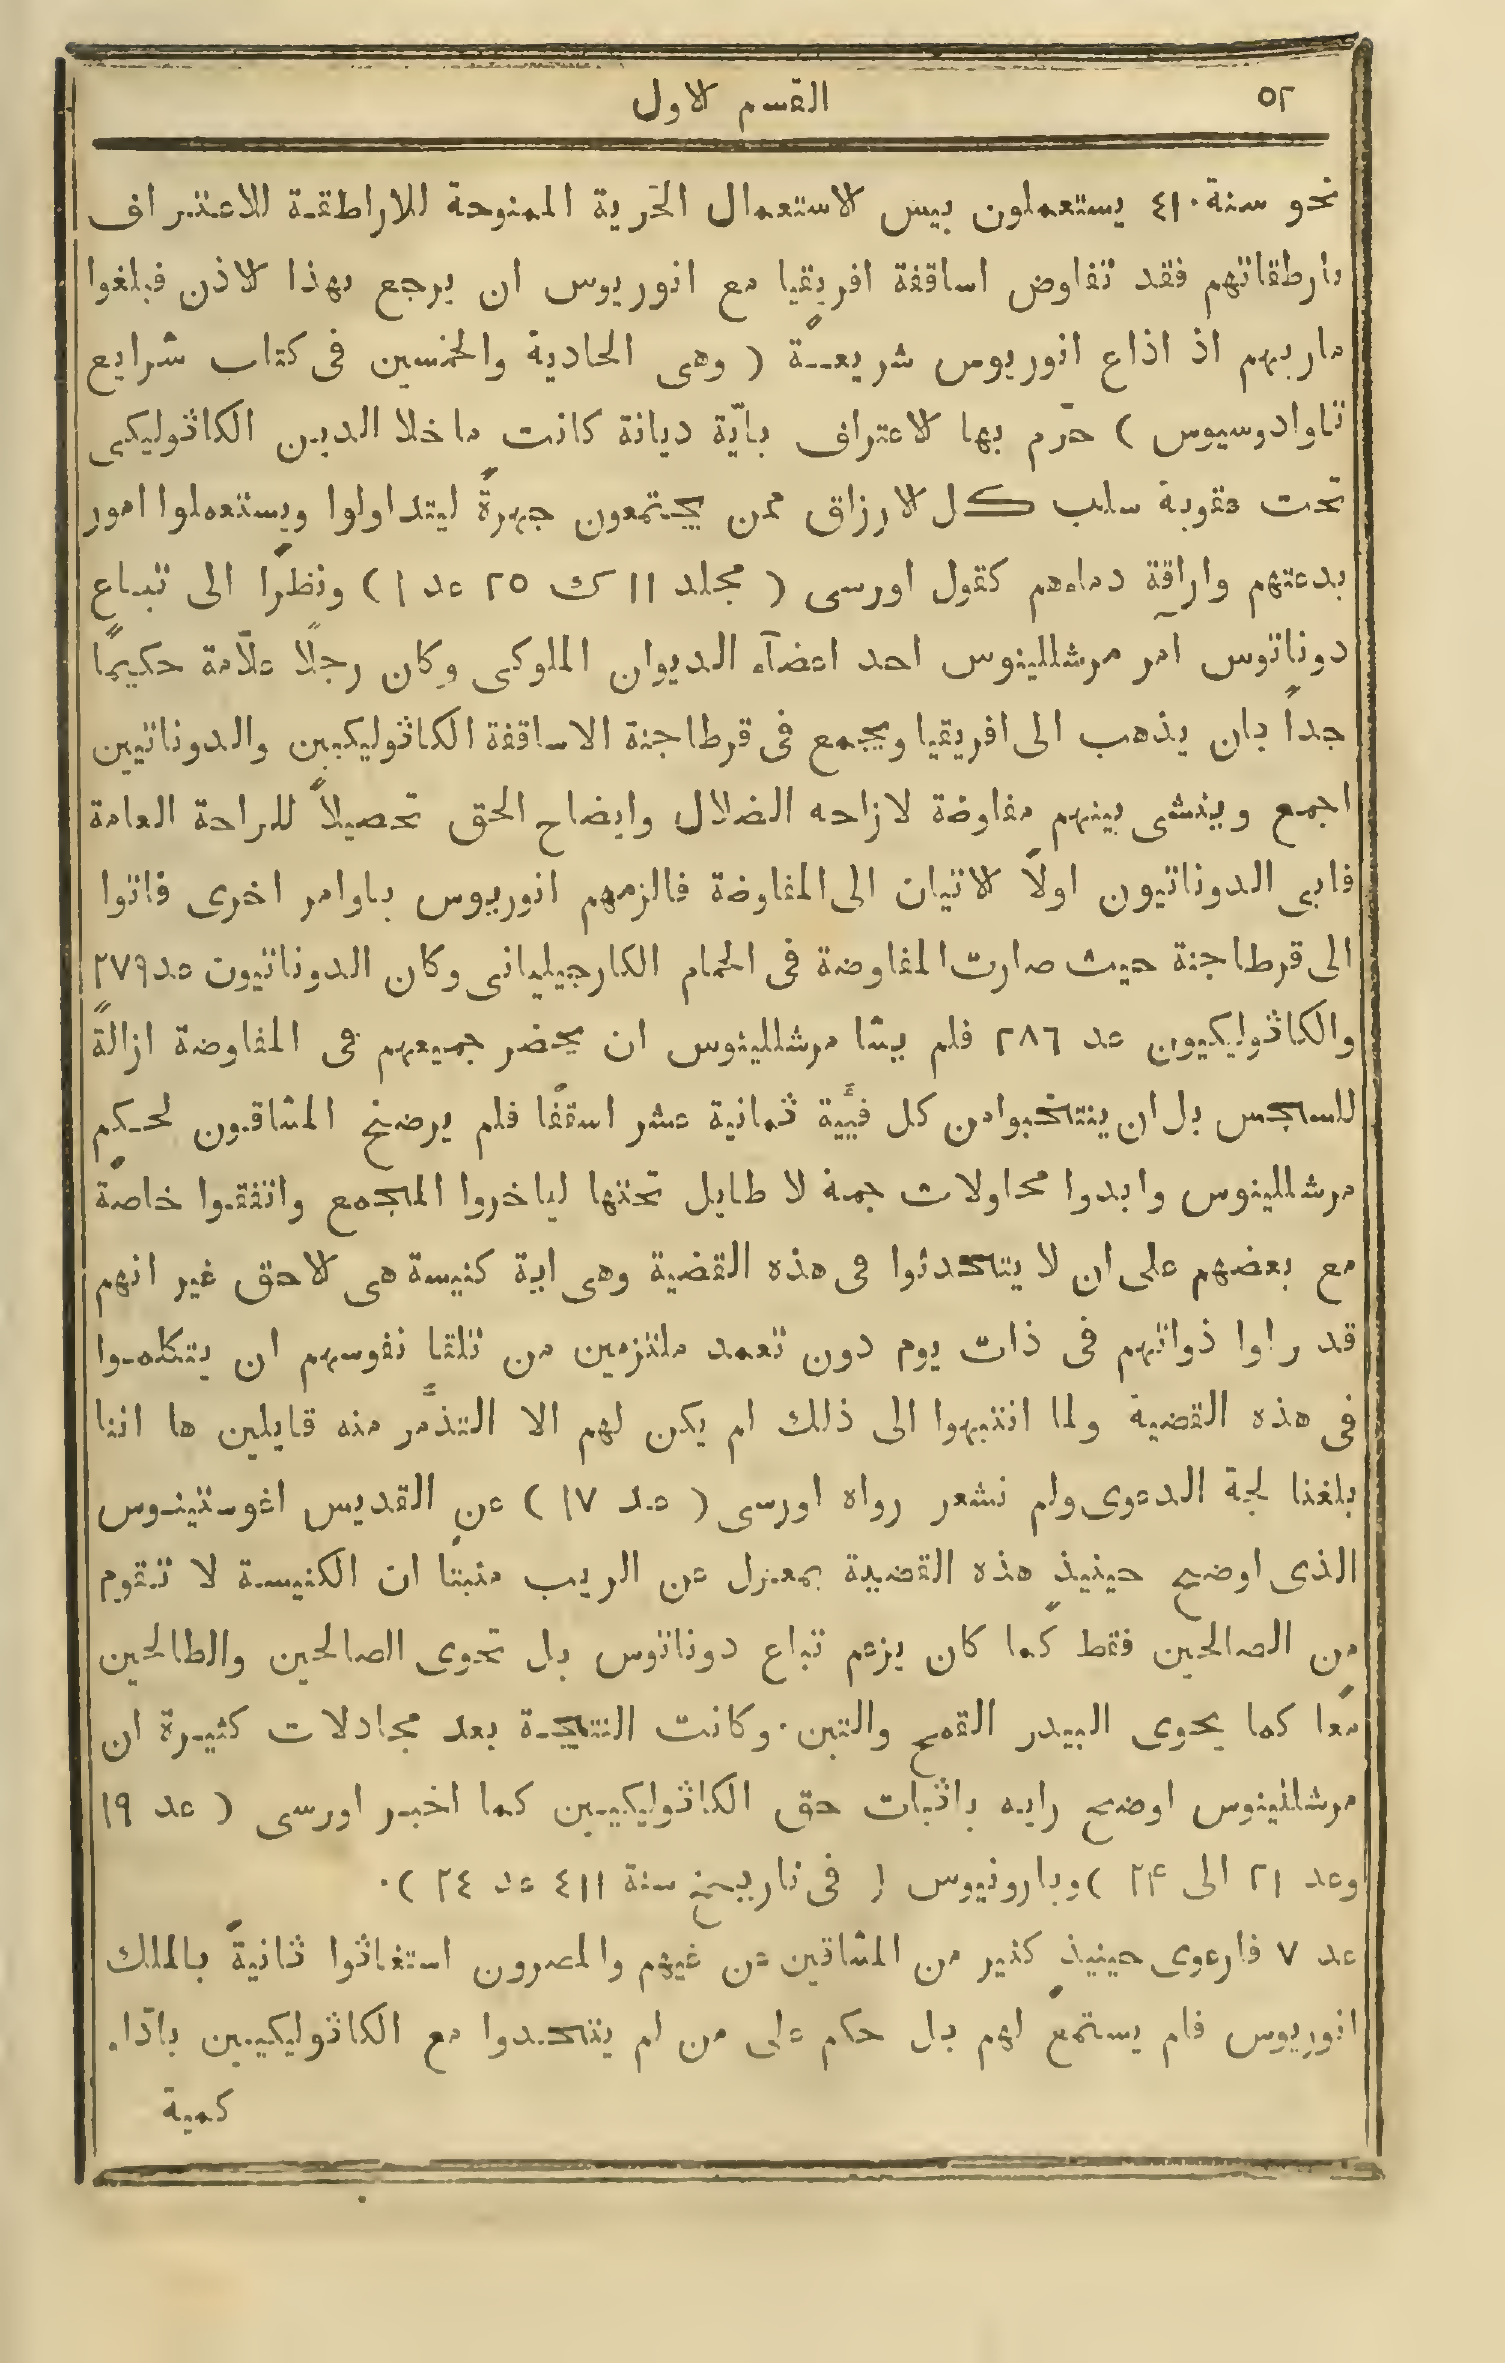 ٥٢ القسم الاول
نحو سنة ٤١٠ يستعملون بيس الاستعمال الحرية الممنوحة للاراطقة للاعتراف
بارطقاتهم فقد تفاوض اساقفة افريقيا مع انوريوس ان يرجع بهذا الاذن فبلغوا
ماربهم اذ اذاع انوريوس شريعةً ( وهى الحادية والخمسين فى كتاب شرايع
تاوادوسيوس ) حرّم بها الاعتراف بايّة ديانة كانت ما خلا الدين الكاثوليكى
تحت عقوبة سلب كل الارزاق ممن يجتمعون جهرةً ليتداولوا ويستعملوا امور
بدعتهم واراقة دماهم كقول اورسى ( مجلد ١١ ك ٢٥ عد ١ ) ونظرًا الى تباع
دوناتوس امر مرشللينوس احد اعضآء الديوان الملوكى وكان رجلًا علّامة حكيمًا
جداً بان يذهب الى افريقيا ويجمع فى قرطاجنة الاساقفة الكاثوليكيين والدوناتيين
اجمع وينشى بينهم مفاوضة لازاحه الضلال وايضاح الحق تحصيلاً للراحة العامة
فابى الدوناتيون اولاً الاتيان الى المفاوضة فالزمهم انوريوس باوامر اخرى فاتوا
الى قرطاجنة حيث صارت المفاوضة فى الحمام الكارجيليانى وكان الدوناتيون عد ٢٧٩
والكاثوليكيون عد ٢٨٦ فلم يشا مرشللينوس ان يحضر جميعهم فى المفاوضة ازالةً
للسجس بل ان ينتخبوا من كل فيئة ثمانية عشر اسقفًا فلم يرضخ المشاقون لحكم
مرشللينوس وابدوا محاولات جمة لا طايل تحتها لياخروا المجمع واتفقوا خاصةً
مع بعضهم على ان لا يتحدثوا فى هذه القضية وهى اية كنيسة هى الاحق غير انهم
قد راوا ذواتهم فى ذات يوم دون تعمد ملتزمين من تلقا نفوسهم ان يتكلموا
فى هذه القضية ولما انتبهوا الى ذلك لم يكن لهم الا التذمّر منه قايلين ها اننا
بلغنا لجة الدعوى ولم نشعر رواه اورسى ( عد ١٧ ) عن القديس اغوستينوس
الذى اوضح حينيذٍ هذه القضية بمعزل عن الريب مثبتا ان الكنيسة لا تقوم
من الصالحين فقط كما كان يزعم تباع دوناتوس بل تحوى الصالحين والطالحين
معًا كما يحوى البيدر القمح والتبن٠ وكانت النتيجة بعد مجادلات كثيرة ان
مرشللينوس اوضح رايه باثبات حق الكاثوليكيين كما اخبر اورسى ( عد ١٩
وعد ٢١ الى ٢٤ ) وبارونيوس ( فى تاريخ سنة ٤١١ عد ٢٤ )٠
عد ٧ فارعوى حينيذٍ كثير من المشاقين عن غيهم والمصرون استغاثوا ثانيةً بالملك
انوريوس فلم يستمع لهم بل حكم على من لم يتحدوا مع الكاثوليكيين بادآء
كمية